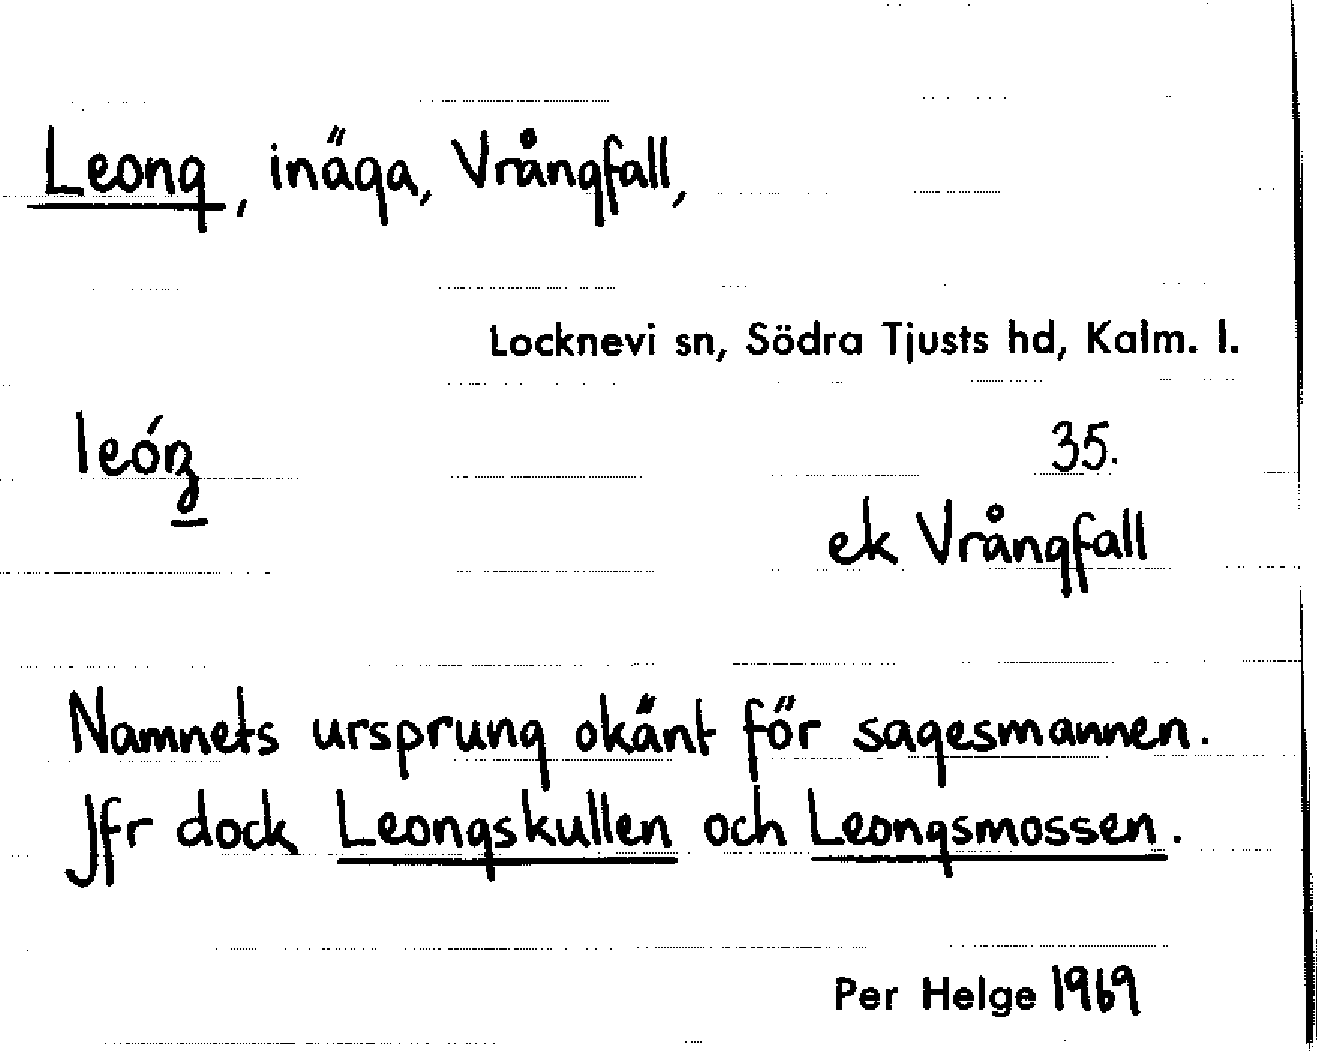 Leong, inäga, Vrångfall,
Locknevi sn, Södra Tjusts hd, Kalm. l.
35.
ek Vrångfall
Namnets ursprung okänt för sagesmannen.
Jfr dock Leongskullen och Leongsmossen.
Per Helge 1969